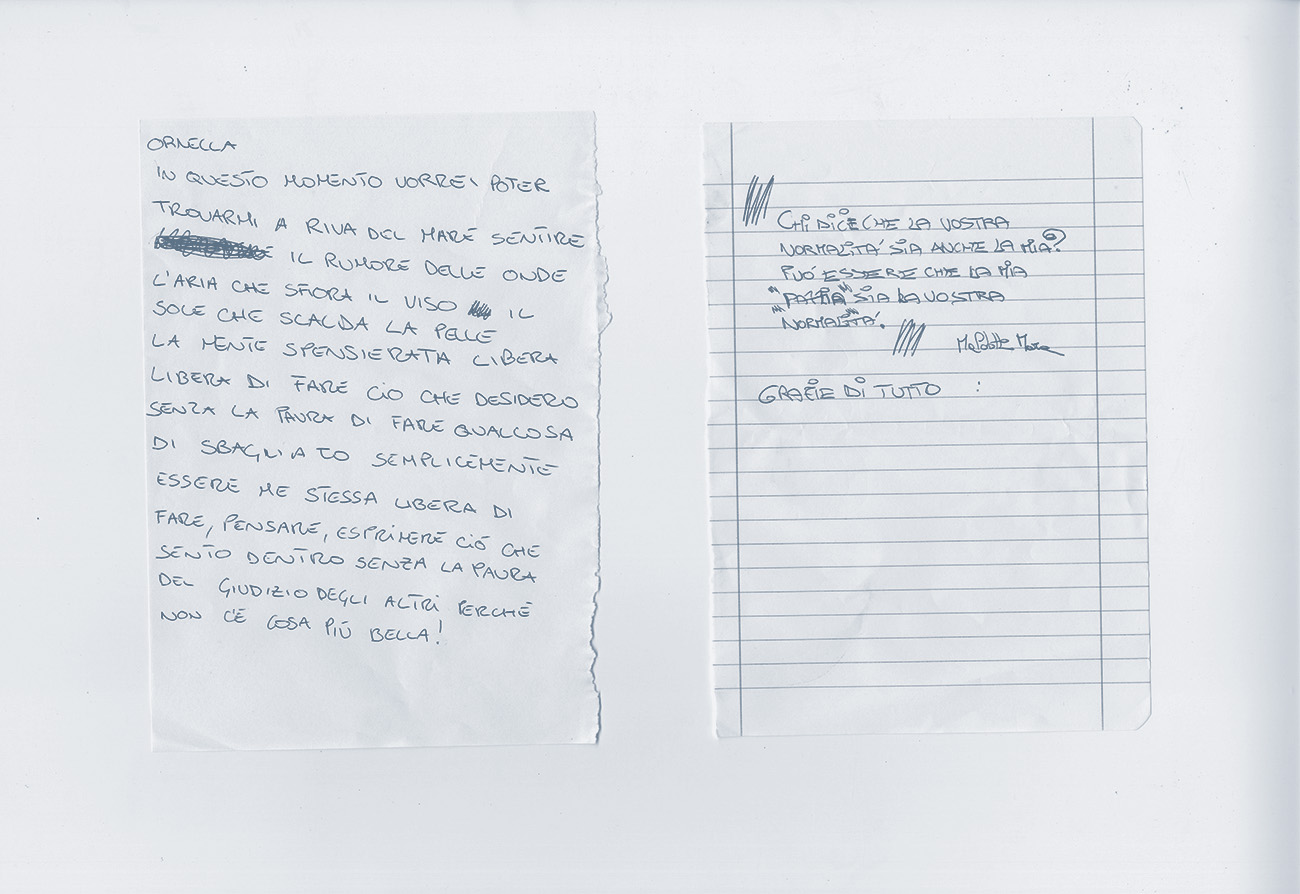 ORNELLA
IN QUESTO MOMENTO VORREI POTER
TROVARMI A RIVA DEL MARE SENTIRE
IL RUMORE DELLE ONDE
L'ARIA CHE SFIORA IL VISO IL
SOLE CHE SCALDA LA PELLE
LA MENTE SPENSIERATA LIBERA
LIBERA DI FARE CIÒ CHE DESIDERO
SENZA LA PAURA DI FARE QUALCOSA
DI SBAGLIATO SEMPLICEMENTE
ESSERE ME STESSA LIBERA DI
FARE, PENSARE, ESPRIMERE CIÓ CHE
SENTO DENTRO SENZA LA PAURA
DEL GIUDIZIO DEGLI ALTRI PERCHÉ
NON C'É COSA PIÚ BELLA!
CHI DICE CHE LA VOSTRA
NORMALITÁ SIA ANCHE LA MIA?
PUÓ ESSERE CHE LA MIA
"PAZZIA" SIA LA VOSTRA
"NORMALITÁ".
GRAZIE DI TUTTO :